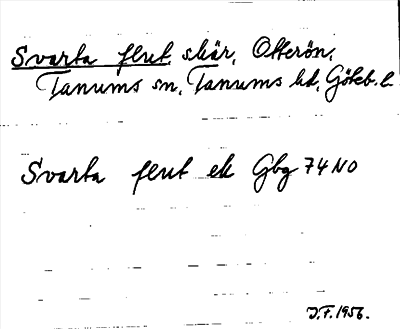 Svarta flut skär, Otterön,
Tanums sn, Tanums hd, Göteb. l.
Svarta flut ek Gbg 74 NO
J.F. 1956.